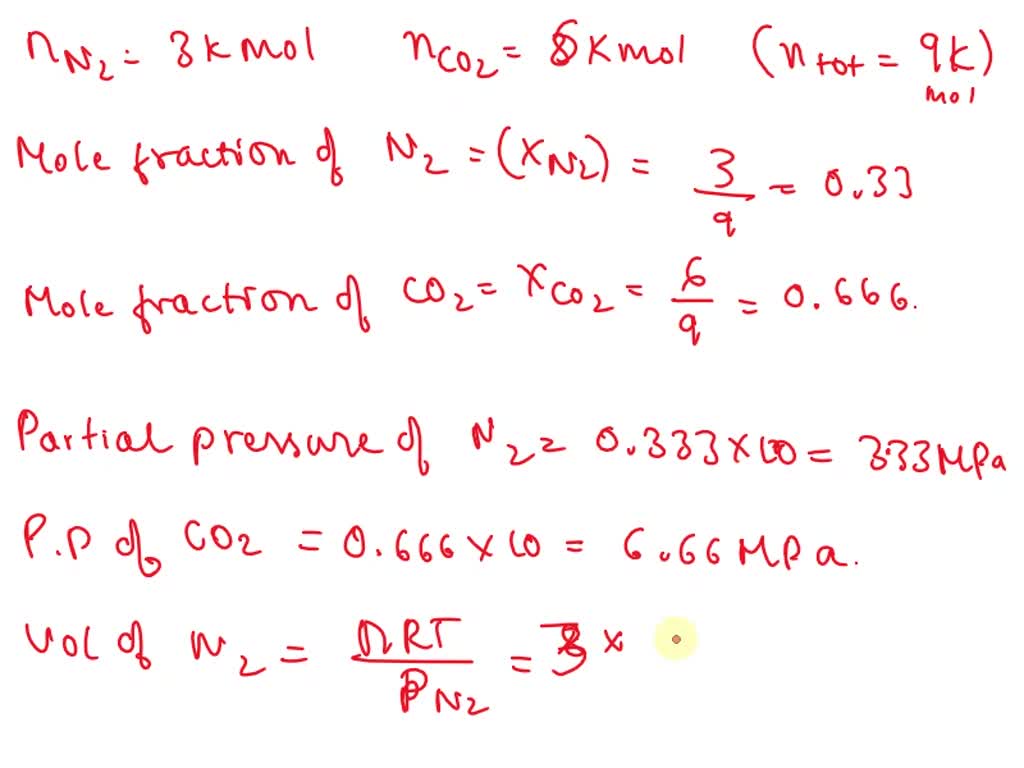 n N2 = 3 kmol n CO2 = 6 Kmol (n tot = 9k)
mol
Mole fraction of N2 = (X N2) = 3/9 = 0.33
Mole fraction of CO2 = X CO2 = 6/9 = 0.666.
Partial pressure of N2 = 0.333 × 10 = 3.33 MPa
P.P of CO2 = 0.666 × 10 = 6.66 MPa.
Vol of N2 = nRT/P N2 = 3 ×